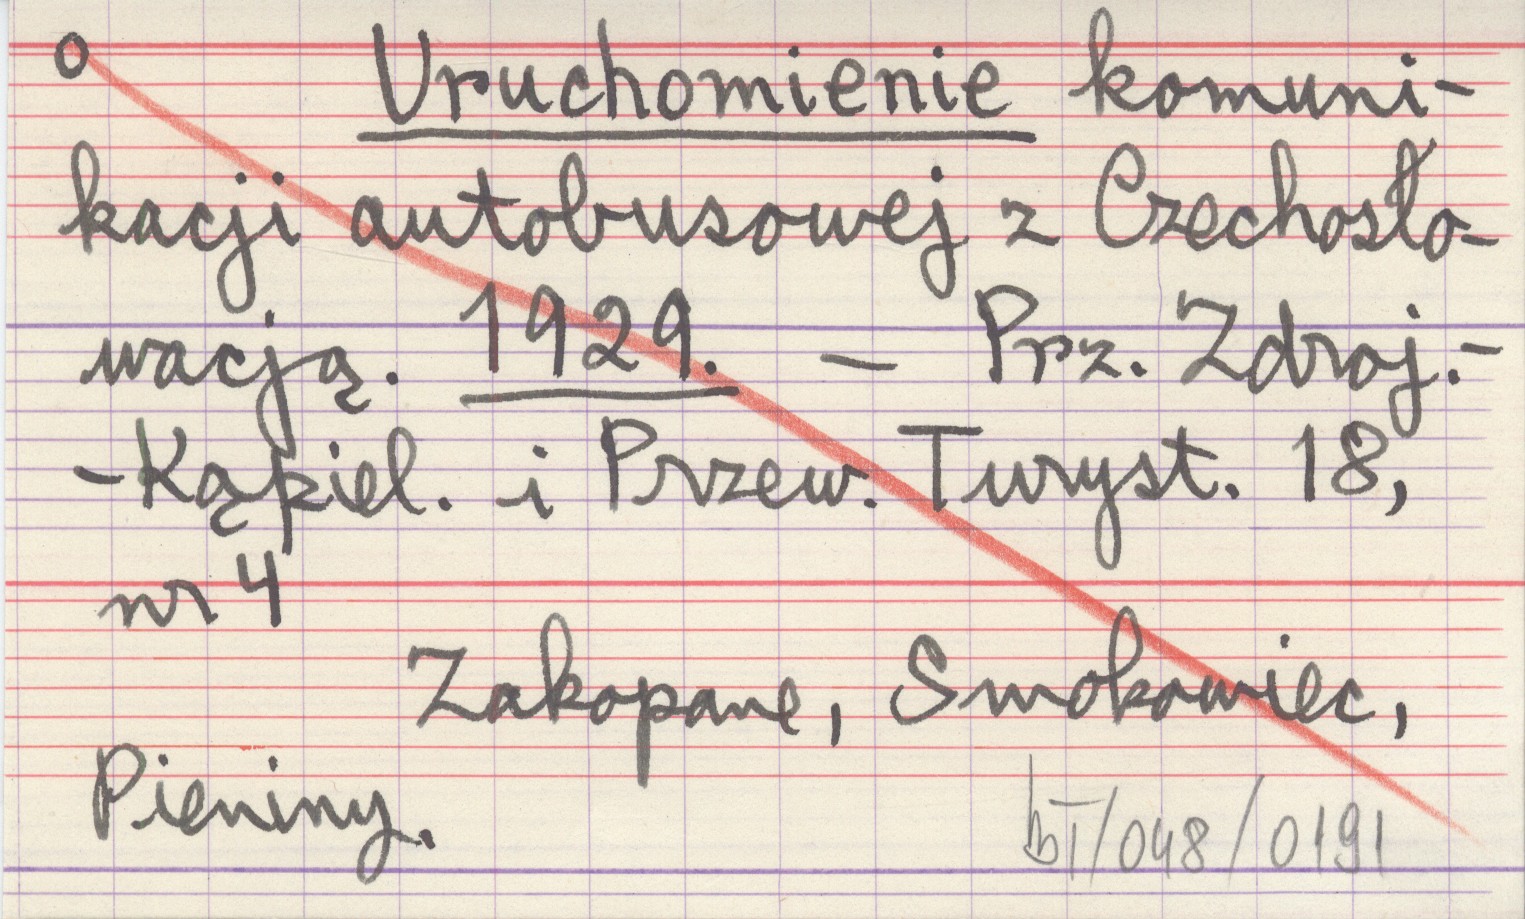 o Uruchomienie komuni-
kacji autobusowej z Czechosło-
wacją. 1929. — Prz. Zdroj.-
-Kąpiel. i Przew. Turyst. 18,
nr 4
Zakopane, Smokowiec,
Pieniny.
bT/048/0191